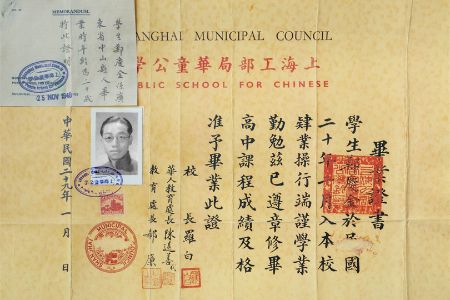 MEMORANDUM.
學生鄭慶全係廣
東省中山縣人畢
業時年齡為二十歲
特此證明
25 NOV 1940
ANGHAI MUNICIPAL COUNCIL
上海工部局華童公學
BLIC SCHOOL FOR CHINESE
畢業證書
學生鄭慶全於民國
二十年 月入本校
肄業操行端謹學業
勤勉茲已遵章修畢
高中課程成績及格
准予畢業此證
校長羅白
華人教育處長陳選善
教育處長郝
中華民國二十九年一月 日